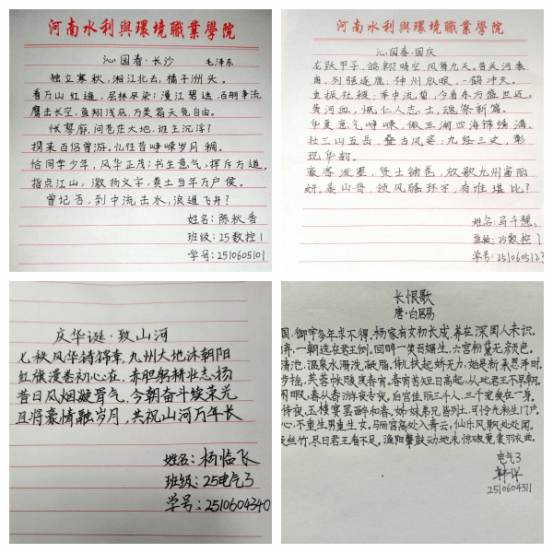 河南水利與環境職業學院
沁园春·长沙 毛泽东
独立寒秋,湘江北去,橘子洲头。
看万山红遍,层林尽染;漫江碧透,百舸争流。
鹰击长空,鱼翔浅底,万类霜天竞自由。
怅寥廓,问苍茫大地,谁主沉浮?
携来百侣曾游,忆往昔峥嵘岁月稠。
恰同学少年,风华正茂;书生意气,挥斥方遒。
指点江山,激扬文字,粪土当年万户侯。
曾记否,到中流击水,浪遏飞舟?
姓名:陈秋香
班级:25数控1
学号:2510605101
河南水利與環境職業學院
沁园春·国庆
七跃甲子,鸽翱晴空,凤舞九天。昔关河寒
列强逐鹿;神州放眼,一鹤冲天。
重振社稷,举中流誓,今看东方盛世近。
黄河血,慨仁人志士,魂祭新篇。
华夏意气峥嵘,傲五湖四海锦绣满。
壮三山五岳,叠古风姿;九经三史,彰
现华韵。
豪客泼墨,贤士铺卷,放歌九州富丽
妍。泰山脊,领风骚环宇,有谁堪比?
姓名:马千慧
班级:25数控1
学号:25106051
庆华诞·致山河
七秩风华铸锦章,九州大地沐朝阳
红旗漫卷初心在,赤胆躬耕壮志扬
昔日风烟凝脊气,今朝奋斗续荣光
且将豪情融岁月,共祝山河万年长
姓名:杨怡飞
班级:25电气3
学号:2510604340
长恨歌
唐·白居易
国,御宇多年求不得。杨家有女初长成,养在深闺人未识。
弃,一朝选在君王侧。回眸一笑百媚生,六宫粉黛无颜色。
清池,温泉水滑洗凝脂。侍儿扶起娇无力,始是新承恩泽时。
步摇,芙蓉帐暖度春宵。春宵苦短日高起,从此君王不早朝。
闲暇,春从春游夜专夜。后宫佳丽三千人,三千宠爱在一身。
侍夜,玉楼宴罢醉和春。姊妹弟兄皆列土,可怜光彩生门户。
心,不重生男重生女。骊宫高处入青云,仙乐风飘处处闻。
丝竹,尽日君王看不足。渔阳鼙鼓动地来,惊破霓裳羽衣曲。
电气3
2510604311